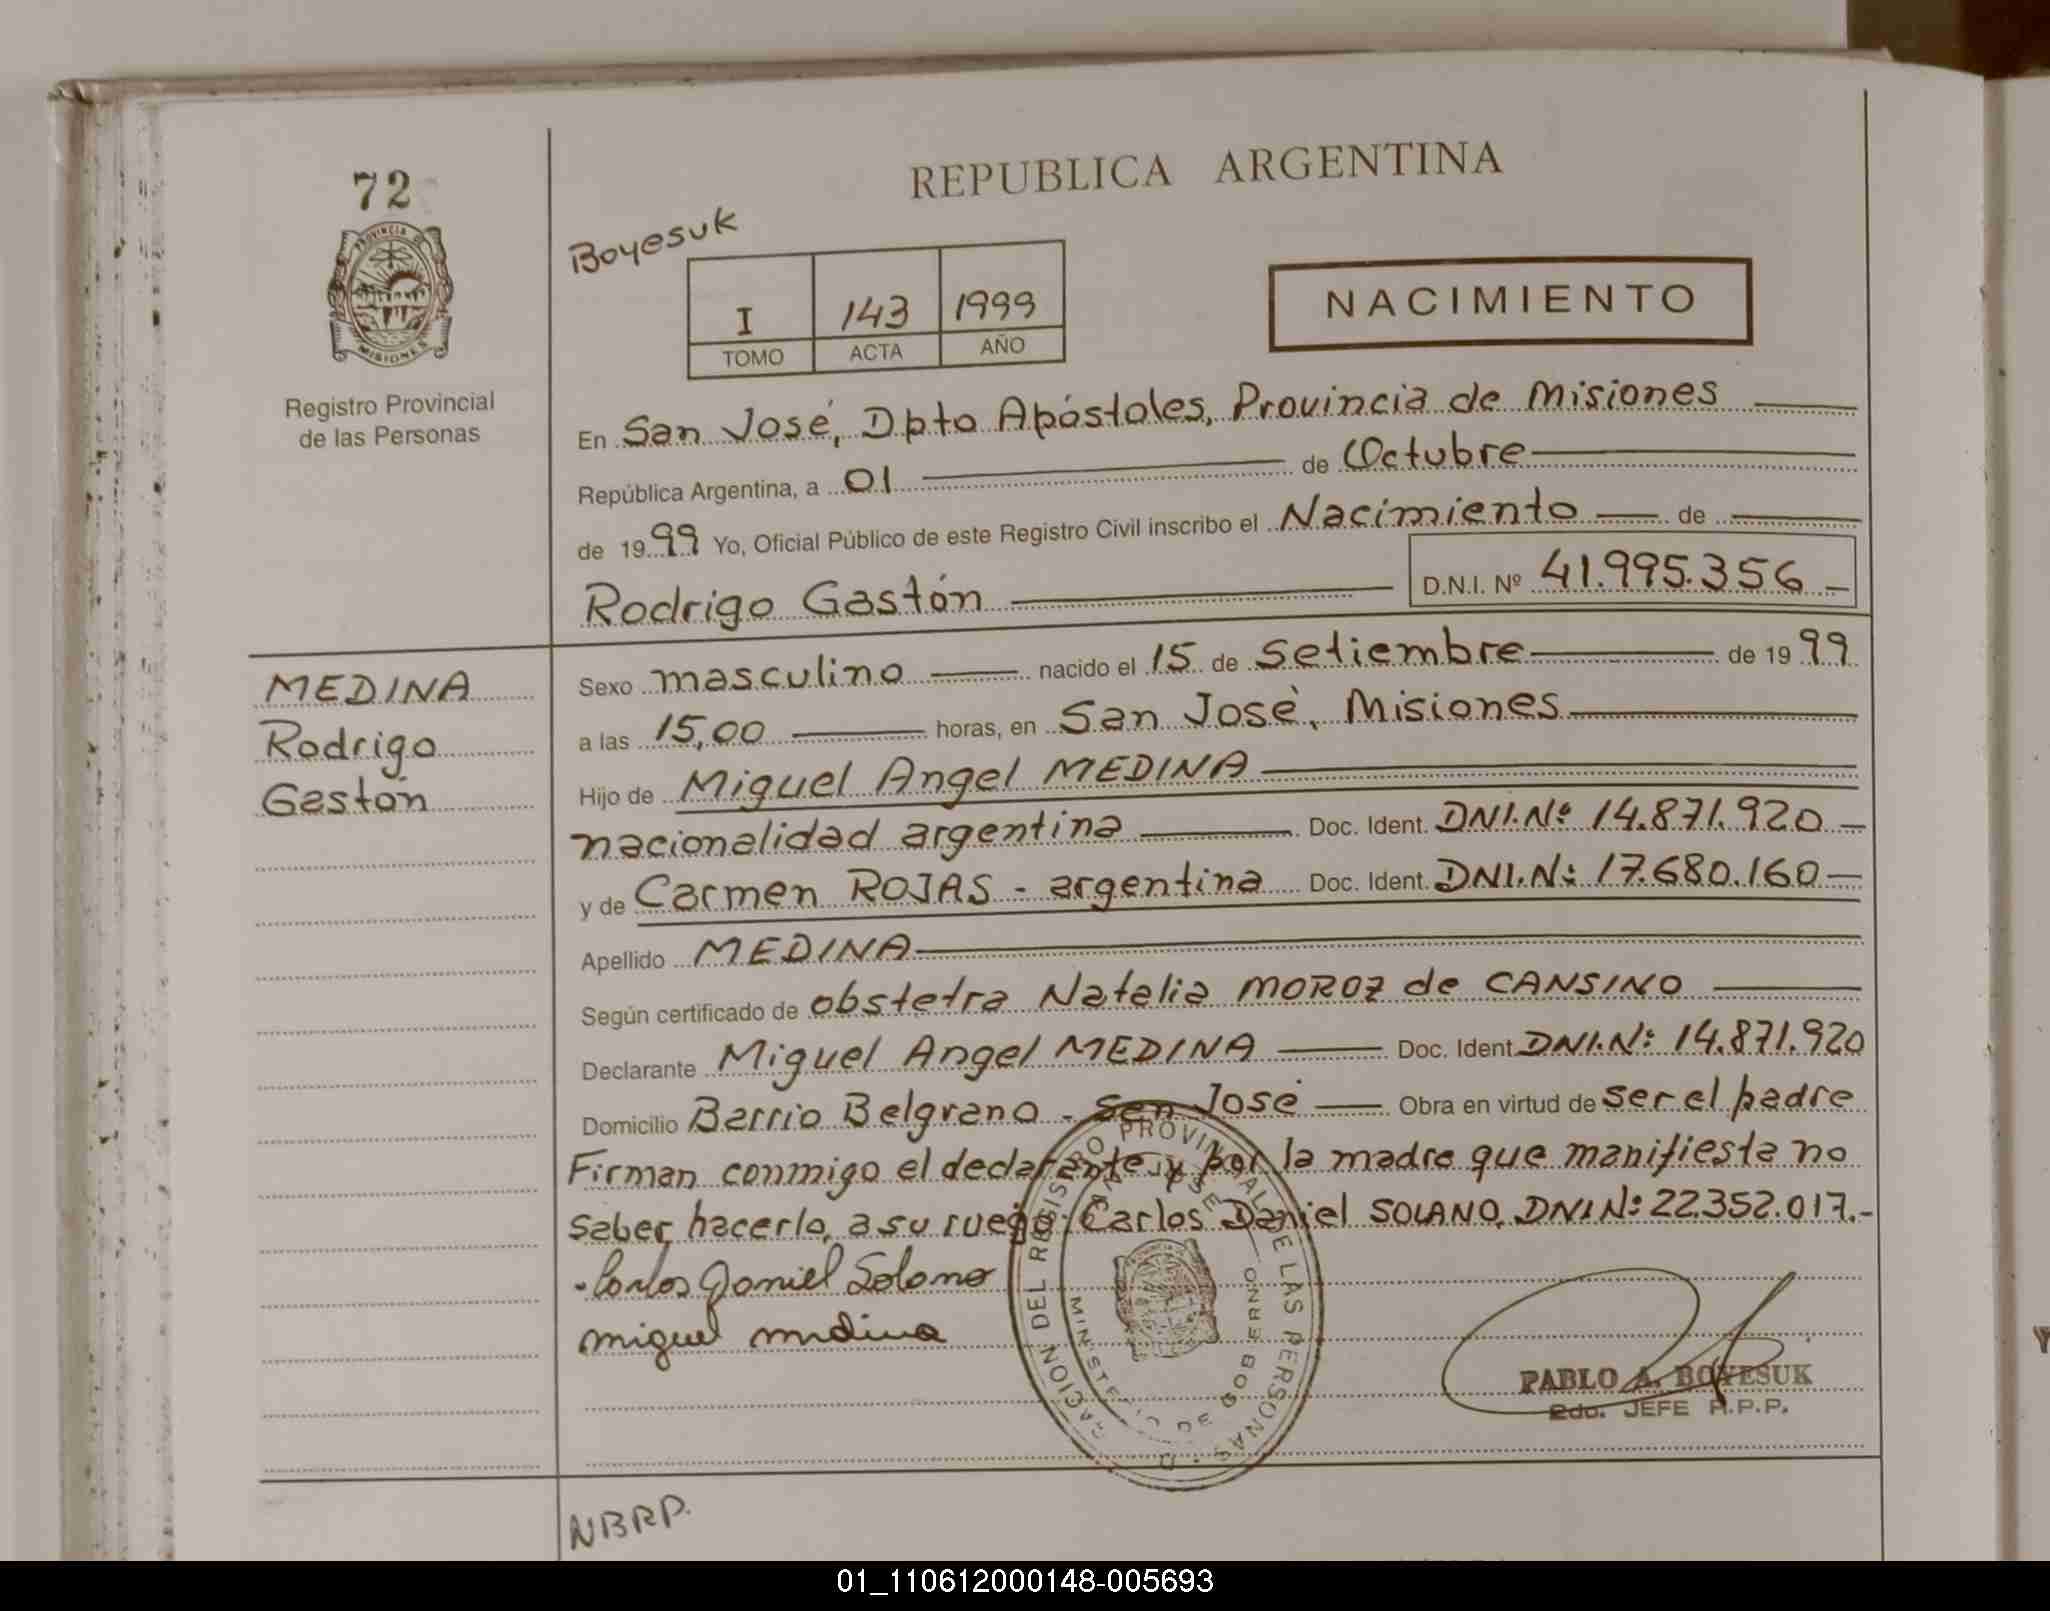 72
REPUBLICA ARGENTINA
Boyesuk
PROVINCIA DE
MISIONES
Registro Provincial
de las Personas
I 143 1999
TOMO ACTA AÑO
NACIMIENTO
En San José, Dpto Apóstoles, Provincia de Misiones
República Argentina, a 01 de Octubre
de 1999 Yo, Oficial Público de este Registro Civil inscribo el Nacimiento de
Rodrigo Gastón D.N.I. Nº 41.995.356.-
MEDINA
Rodrigo
Gastón
Sexo masculino nacido el 15 de Setiembre de 1999
a las 15,00 horas, en San José, Misiones
Hijo de Miguel Angel MEDINA
nacionalidad argentina Doc. Ident. DNI.Nº 14.871.920
y de Carmen ROJAS - argentina Doc. Ident. DNI.N: 17.680.160
Apellido MEDINA
Según certificado de obstetra Natalia MOROZ de CANSINO
Declarante Miguel Angel MEDINA Doc. Ident. DNI.N: 14.871.920
Domicilio Barrio Belgrano - San José Obra en virtud de ser el padre
Firman conmigo el declarante y por la madre que manifiesta no
saber hacerlo, a su ruego: Carlos Daniel SOLANO, DNI N: 22.352.017.-
Carlos Daniel Solano
miguel medina
DEL REGISTRO PROVINCIAL DE LAS PERSONAS
SAN JOSE
MINISTERIO DE GOBIERNO
PABLO A. BOYESUK
2do. JEFE R.P.P.
NBRP.
01_110612000148-005693